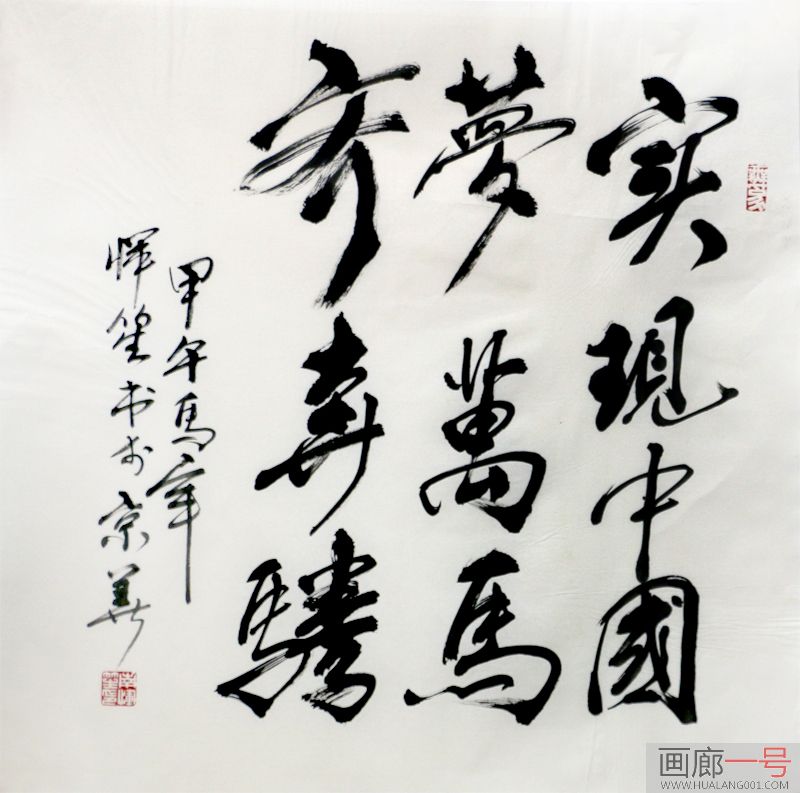 实现中國
夢萬馬
齐奔騰
甲午馬年
恽笙书於京華
画廊一号
WWW.HUALANG001.COM